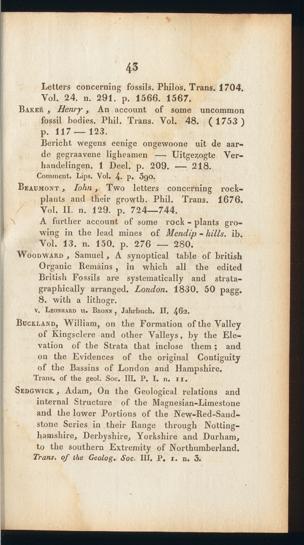 43
Letters concerning fossils. Philos. Trans. 1704.
Vol. 24. n. 291. p. 1566. 1567.
BAKER, Henry, An account of some uncommon
fossil bodies. Phil. Trans. Vol. 48. (1753)
p. 117 — 123.
Bericht wegens eenige ongewoone uit de aar-
de gegraavene ligheamen — Uitgezogte Ver-
handelingen. 1 Deel, p. 209. — 218.
Comment. Lips. Vol. 4. p. 390.
BEAUMONT, Iohn, Two letters concerning rock-
plants and their growth. Phil. Trans. 1676.
Vol. II. n. 129. p. 724—744.
A further account of some rock - plants gro-
wing in the lead mines of Mendip - hills. ib.
Vol. 13. n. 150. p. 276 — 280.
WOODWARD, Samuel, A synoptical table of british
Organic Remains, in which all the edited
British Fossils are systematically and strata-
graphically arranged. London. 1830. 50 pagg.
8. with a lithogr.
v. LEONHARD u. BRONN, Jahrbuch. II. 462.
BUCKLAND, William, on the Formation of the Valley
of Kingsclere and other Valleys, by the Ele-
vation of the Strata that inclose them; and
on the Evidences of the original Contiguity
of the Bassins of London and Hampshire.
Trans. of the geol. Soc. III. P. I. n. 11.
SEDGWICK, Adam, On the Geological relations and
internal Structure of the Magnesian-Limestone
and the lower Portions of the New-Red-Sand-
stone Series in their Range through Notting-
hamshire, Derbyshire, Yorkshire and Durham,
to the southern Extremity of Northumberland.
Trans. of the Geolog. Soc. III. P. 1. n. 3.